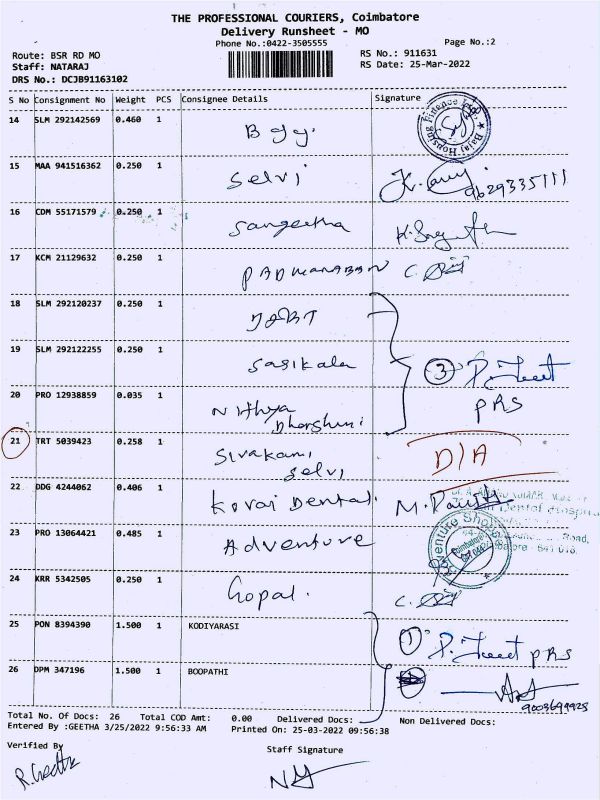 THE PROFESSIONAL COURIERS, Coimbatore
Delivery Runsheet - MO
Phone No.:0422-3505555
Page No.:2
Route: BSR RD MO
Staff: NATARAJ
DRS No.: DCJB91163102
RS No.: 911631
RS Date: 25-Mar-2022
S No Consignment No Weight PCS Consignee Details Signature
14 SLM 292142569 0.460 1
15 MAA 941516362 0.250 1 Selvi 9629335111
16 CDM 55171579 0.250 1 Sangeetha
17 KCM 21129632 0.250 1 PADMANABAN
18 SLM 292120237 0.250 1
19 SLM 292122255 0.250 1 Sasikala 3
20 PRO 12938859 0.035 1 Nithya Dharshini PRS
21 TRT 5039423 0.258 1 Sivakami Selvi D/A
22 DDG 4244062 0.406 1 Kovai Dental
23 PRO 13064421 0.485 1 Adventure
24 KRR 5342505 0.250 1 Gopal.
25 PON 8394390 1.500 1 KODIYARASI 1 PRS
26 DPM 347196 1.500 1 BOOPATHI
Total No. Of Docs: 26 Total COD Amt: 0.00 Delivered Docs: Non Delivered Docs:
Entered By :GEETHA 3/25/2022 9:56:33 AM Printed On: 25-03-2022 09:56:38
Verified By
Staff Signature